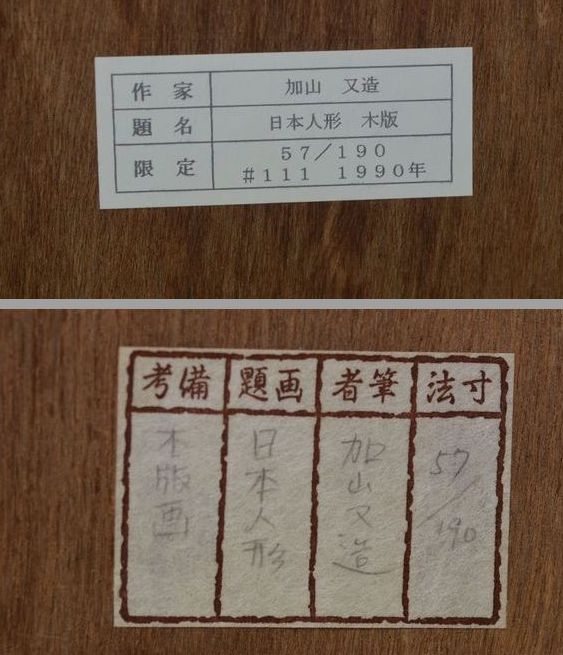 作家 加山 又造
題名 日本人形 木版
限定 57/190
#111 1990年
寸法 筆者 画題 備考
57/190
加山又造
日本人形
木版画